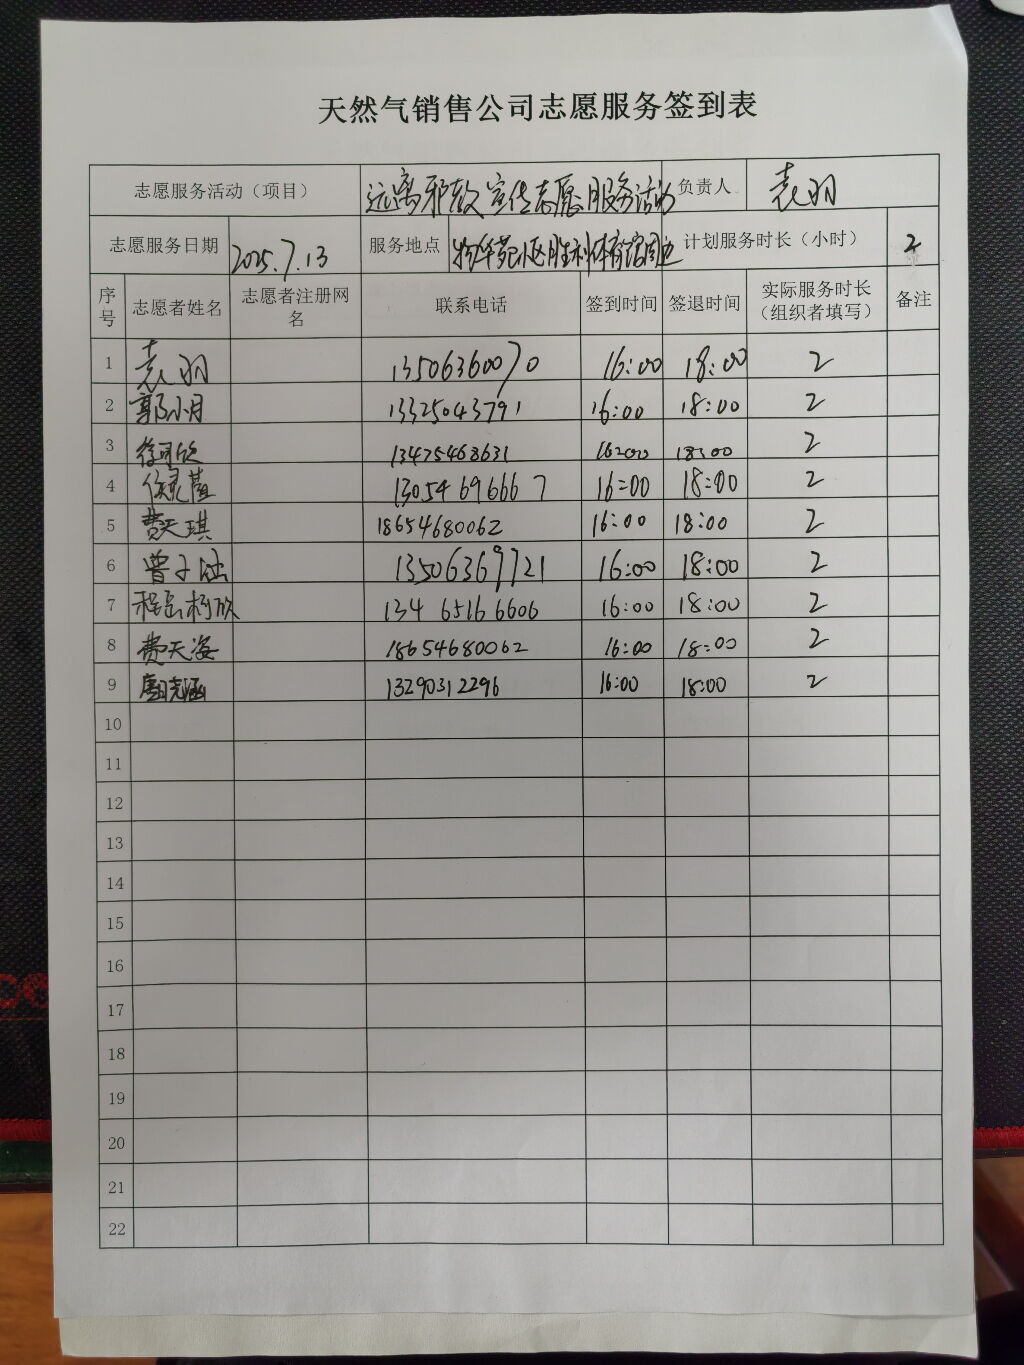 天然气销售公司志愿服务签到表
志愿服务活动（项目） 远离邪教宣传志愿服务活动 负责人 袁羽
志愿服务日期 2025.7.13 服务地点 物华苑小区胜利体育馆周边 计划服务时长（小时） 2
序号 志愿者姓名 志愿者注册网名 联系电话 签到时间 签退时间 实际服务时长（组织者填写） 备注
1 袁羽 13506360070 16:00 18:00 2
2 郭小月 13325043791 16:00 18:00 2
3 13475468631 16:00 18:00 2
4 13054696667 16:00 18:00 2
5 费天琪 18654680062 16:00 18:00 2
6 曾子涵 13506369721 16:00 18:00 2
7 134 6516 6606 16:00 18:00 2
8 费天姿 18654680062 16:00 18:00 2
9 13290312296 16:00 18:00 2
10
11
12
13
14
15
16
17
18
19
20
21
22